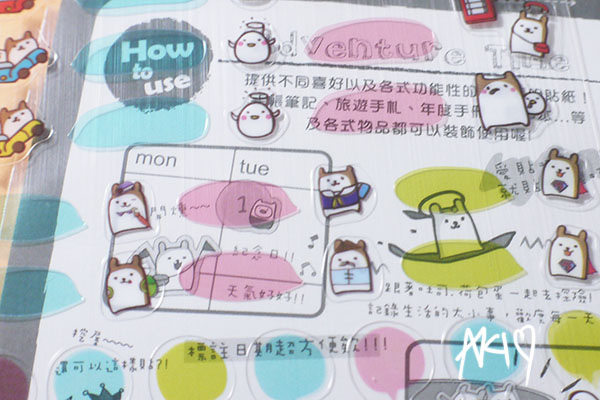 How
to
use
Adventure Time
提供不同喜好以及各式功能性的
貼紙!
帳筆記、旅遊手札、年度手冊
...等
及各式物品都可以裝飾使用喔!
mon
tue
1
紀念日!!
天氣好好!!
愛貼
就貼
跟著吐司、荷包蛋一起去探險!
記錄生活的大小事,歡度每一天
挖塞~~
還可以這樣貼?!
標註日期超方便欸!!!